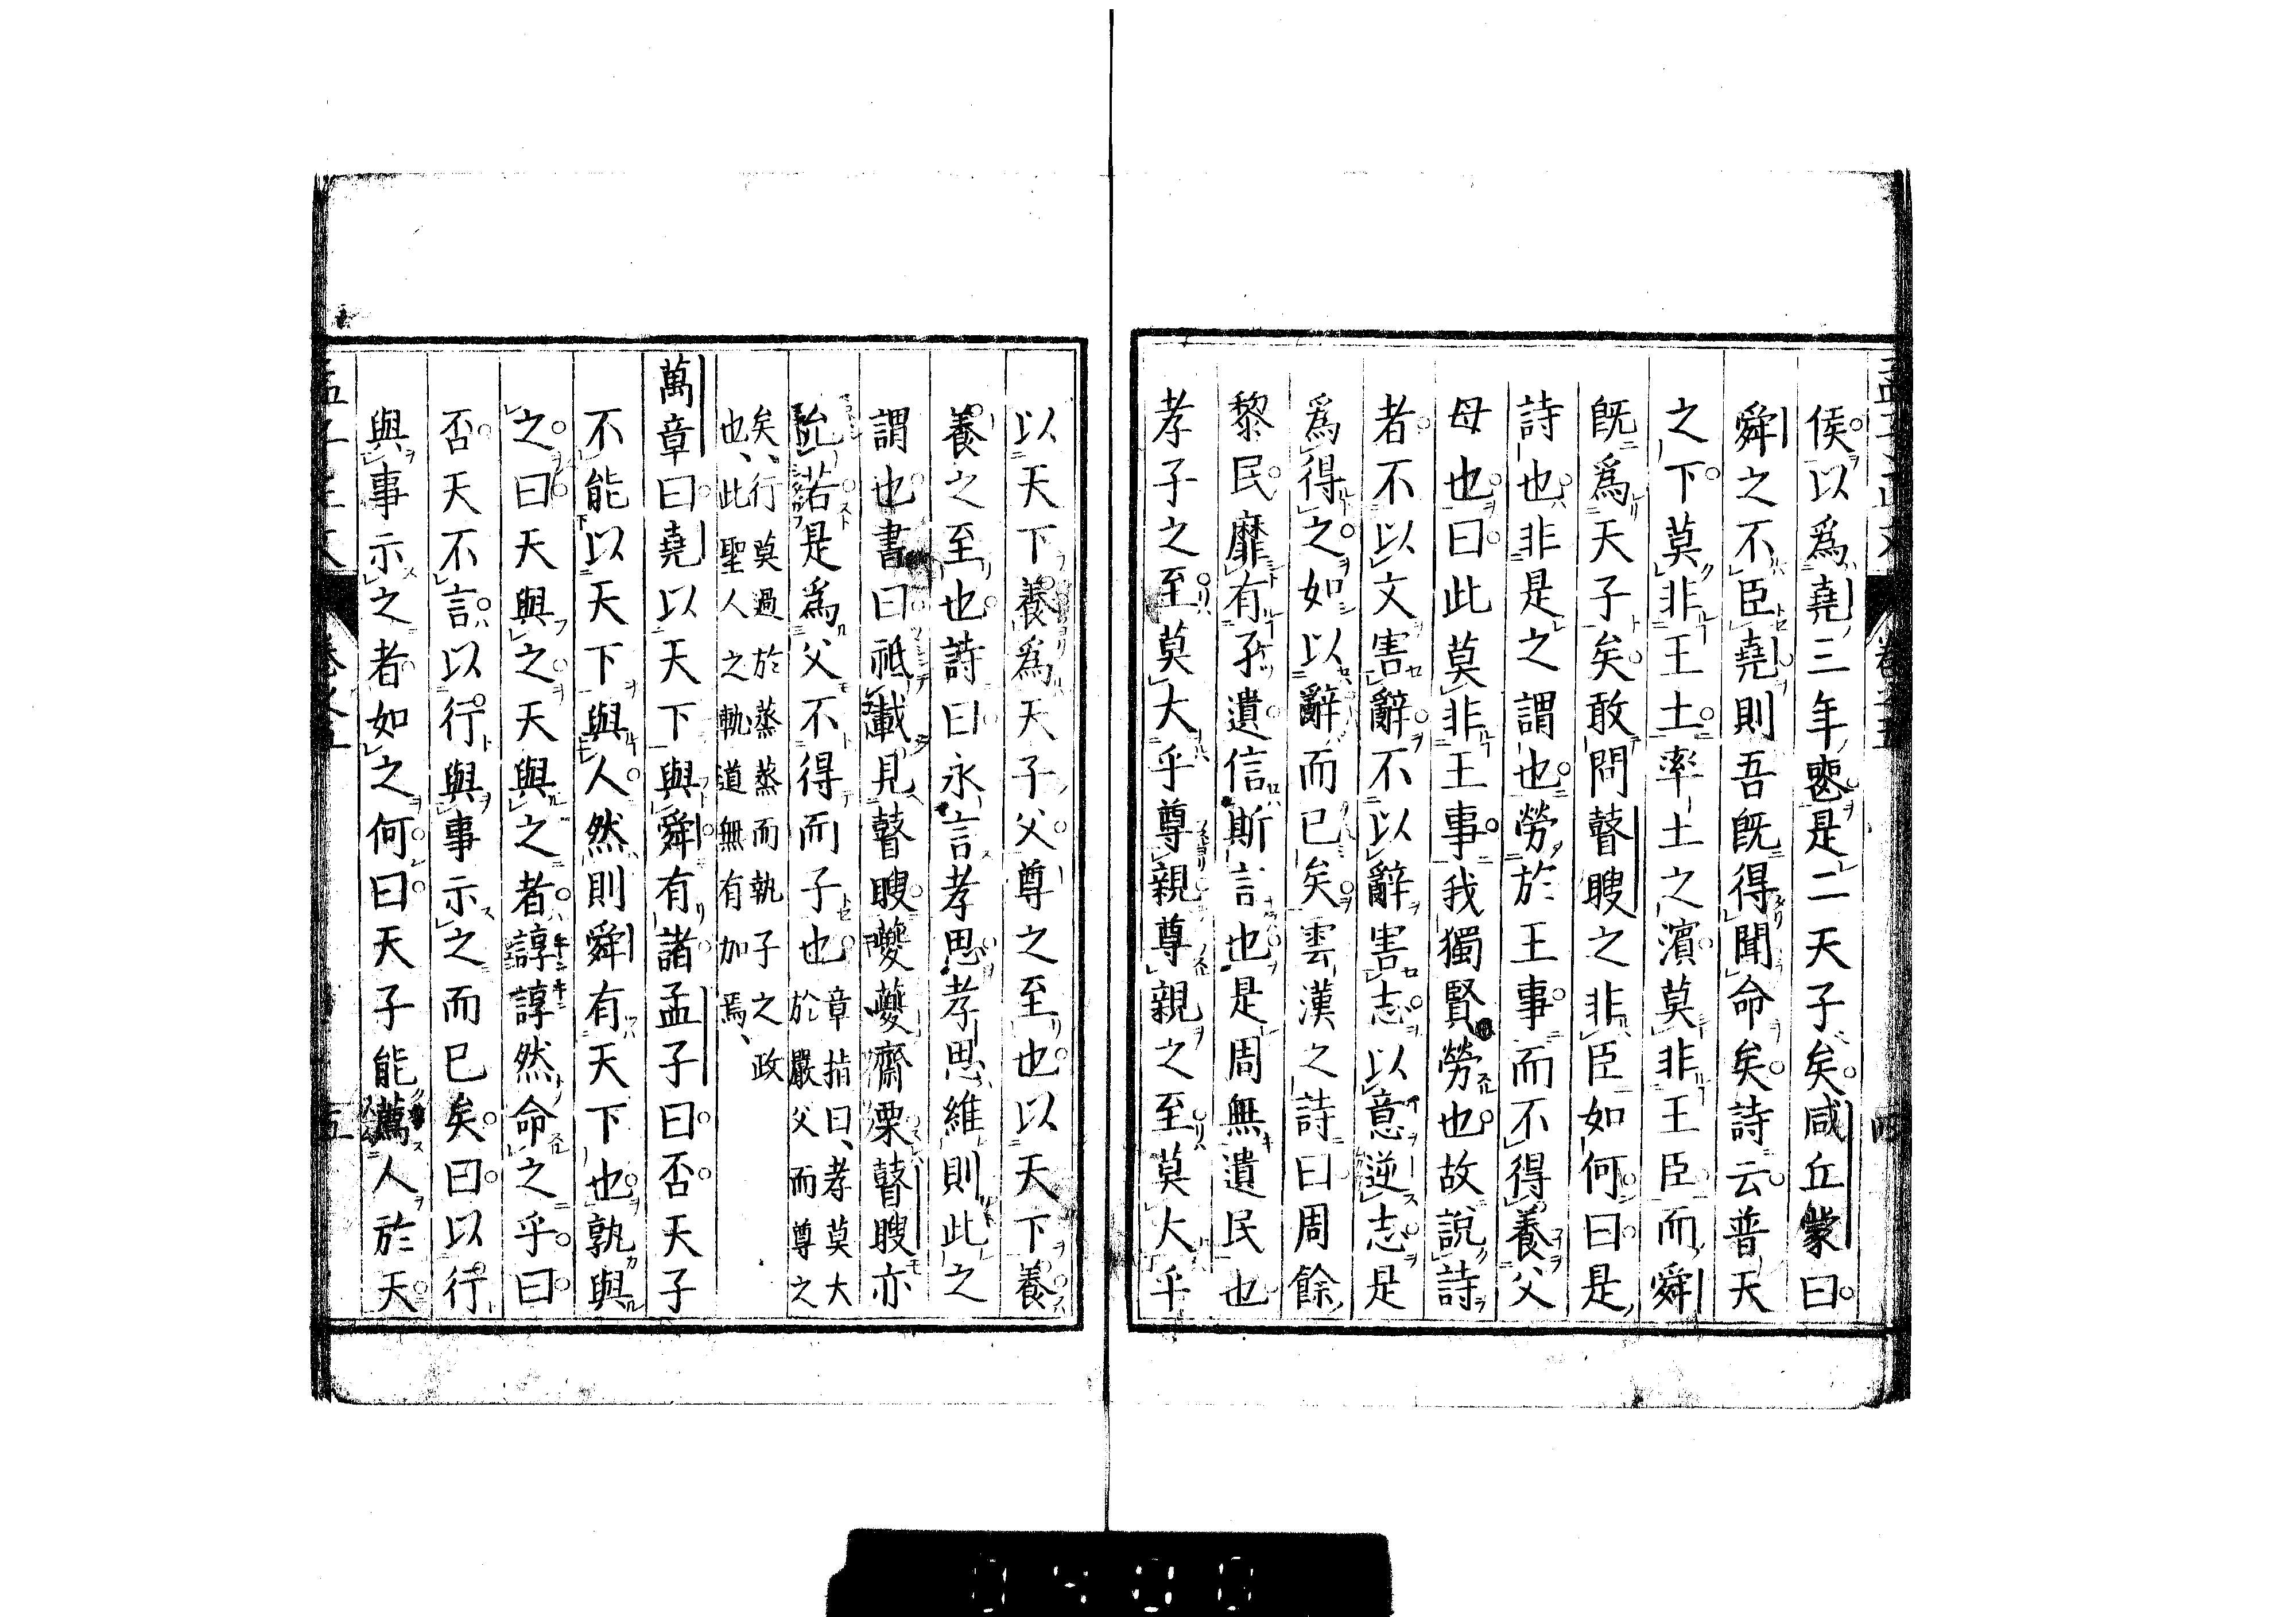 侯以爲堯三年喪是二天子矣咸丘蒙曰
舜之不臣堯則吾既得聞命矣詩云普天
之下莫非王土率土之濱莫非王臣而舜
既爲天子矣敢問瞽瞍之非臣如何曰是
詩也非是之謂也勞於王事而不得養父
母也曰此莫非王事我獨賢勞也故說詩
者不以文害辭不以辭害志以意逆志是
爲得之如以辭而已矣雲漢之詩曰周餘
黎民靡有孑遺信斯言也是周無遺民也
孝子之至莫大乎尊親尊親之至莫大乎
以天下養爲天子父尊之至也以天下養
養之至也詩曰永言孝思孝思維則此之
謂也書曰祗載見瞽瞍夔夔齋栗瞽瞍亦
允諾是爲父不得而子也章指曰、孝莫大
於嚴父而尊之
矣、行莫過於蒸蒸而執子之政
也、此聖人之軌道無有加焉、
萬章曰堯以天下與舜有諸孟子曰否天子
不能以天下與人然則舜有天下也孰與
之曰天與之天與之者諄諄然命之乎曰
否天不言以行與事示之而已矣曰以行
與事示之者如之何曰天子能薦人於天